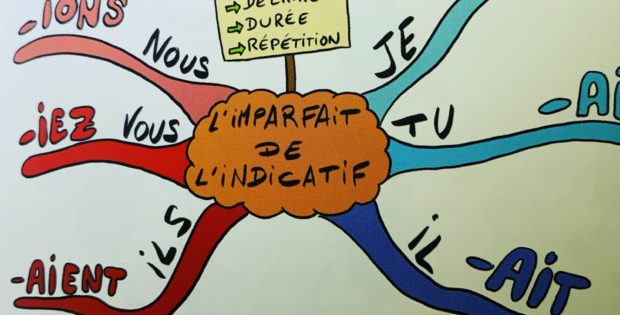 ➔ DURÉE
➔ RÉPÉTITION
-IONS
NOUS
JE
-IEZ
VOUS
L'IMPARFAIT
DE
L'INDICATIF
TU
-AI
-AIENT
ILS
IL
-AIT